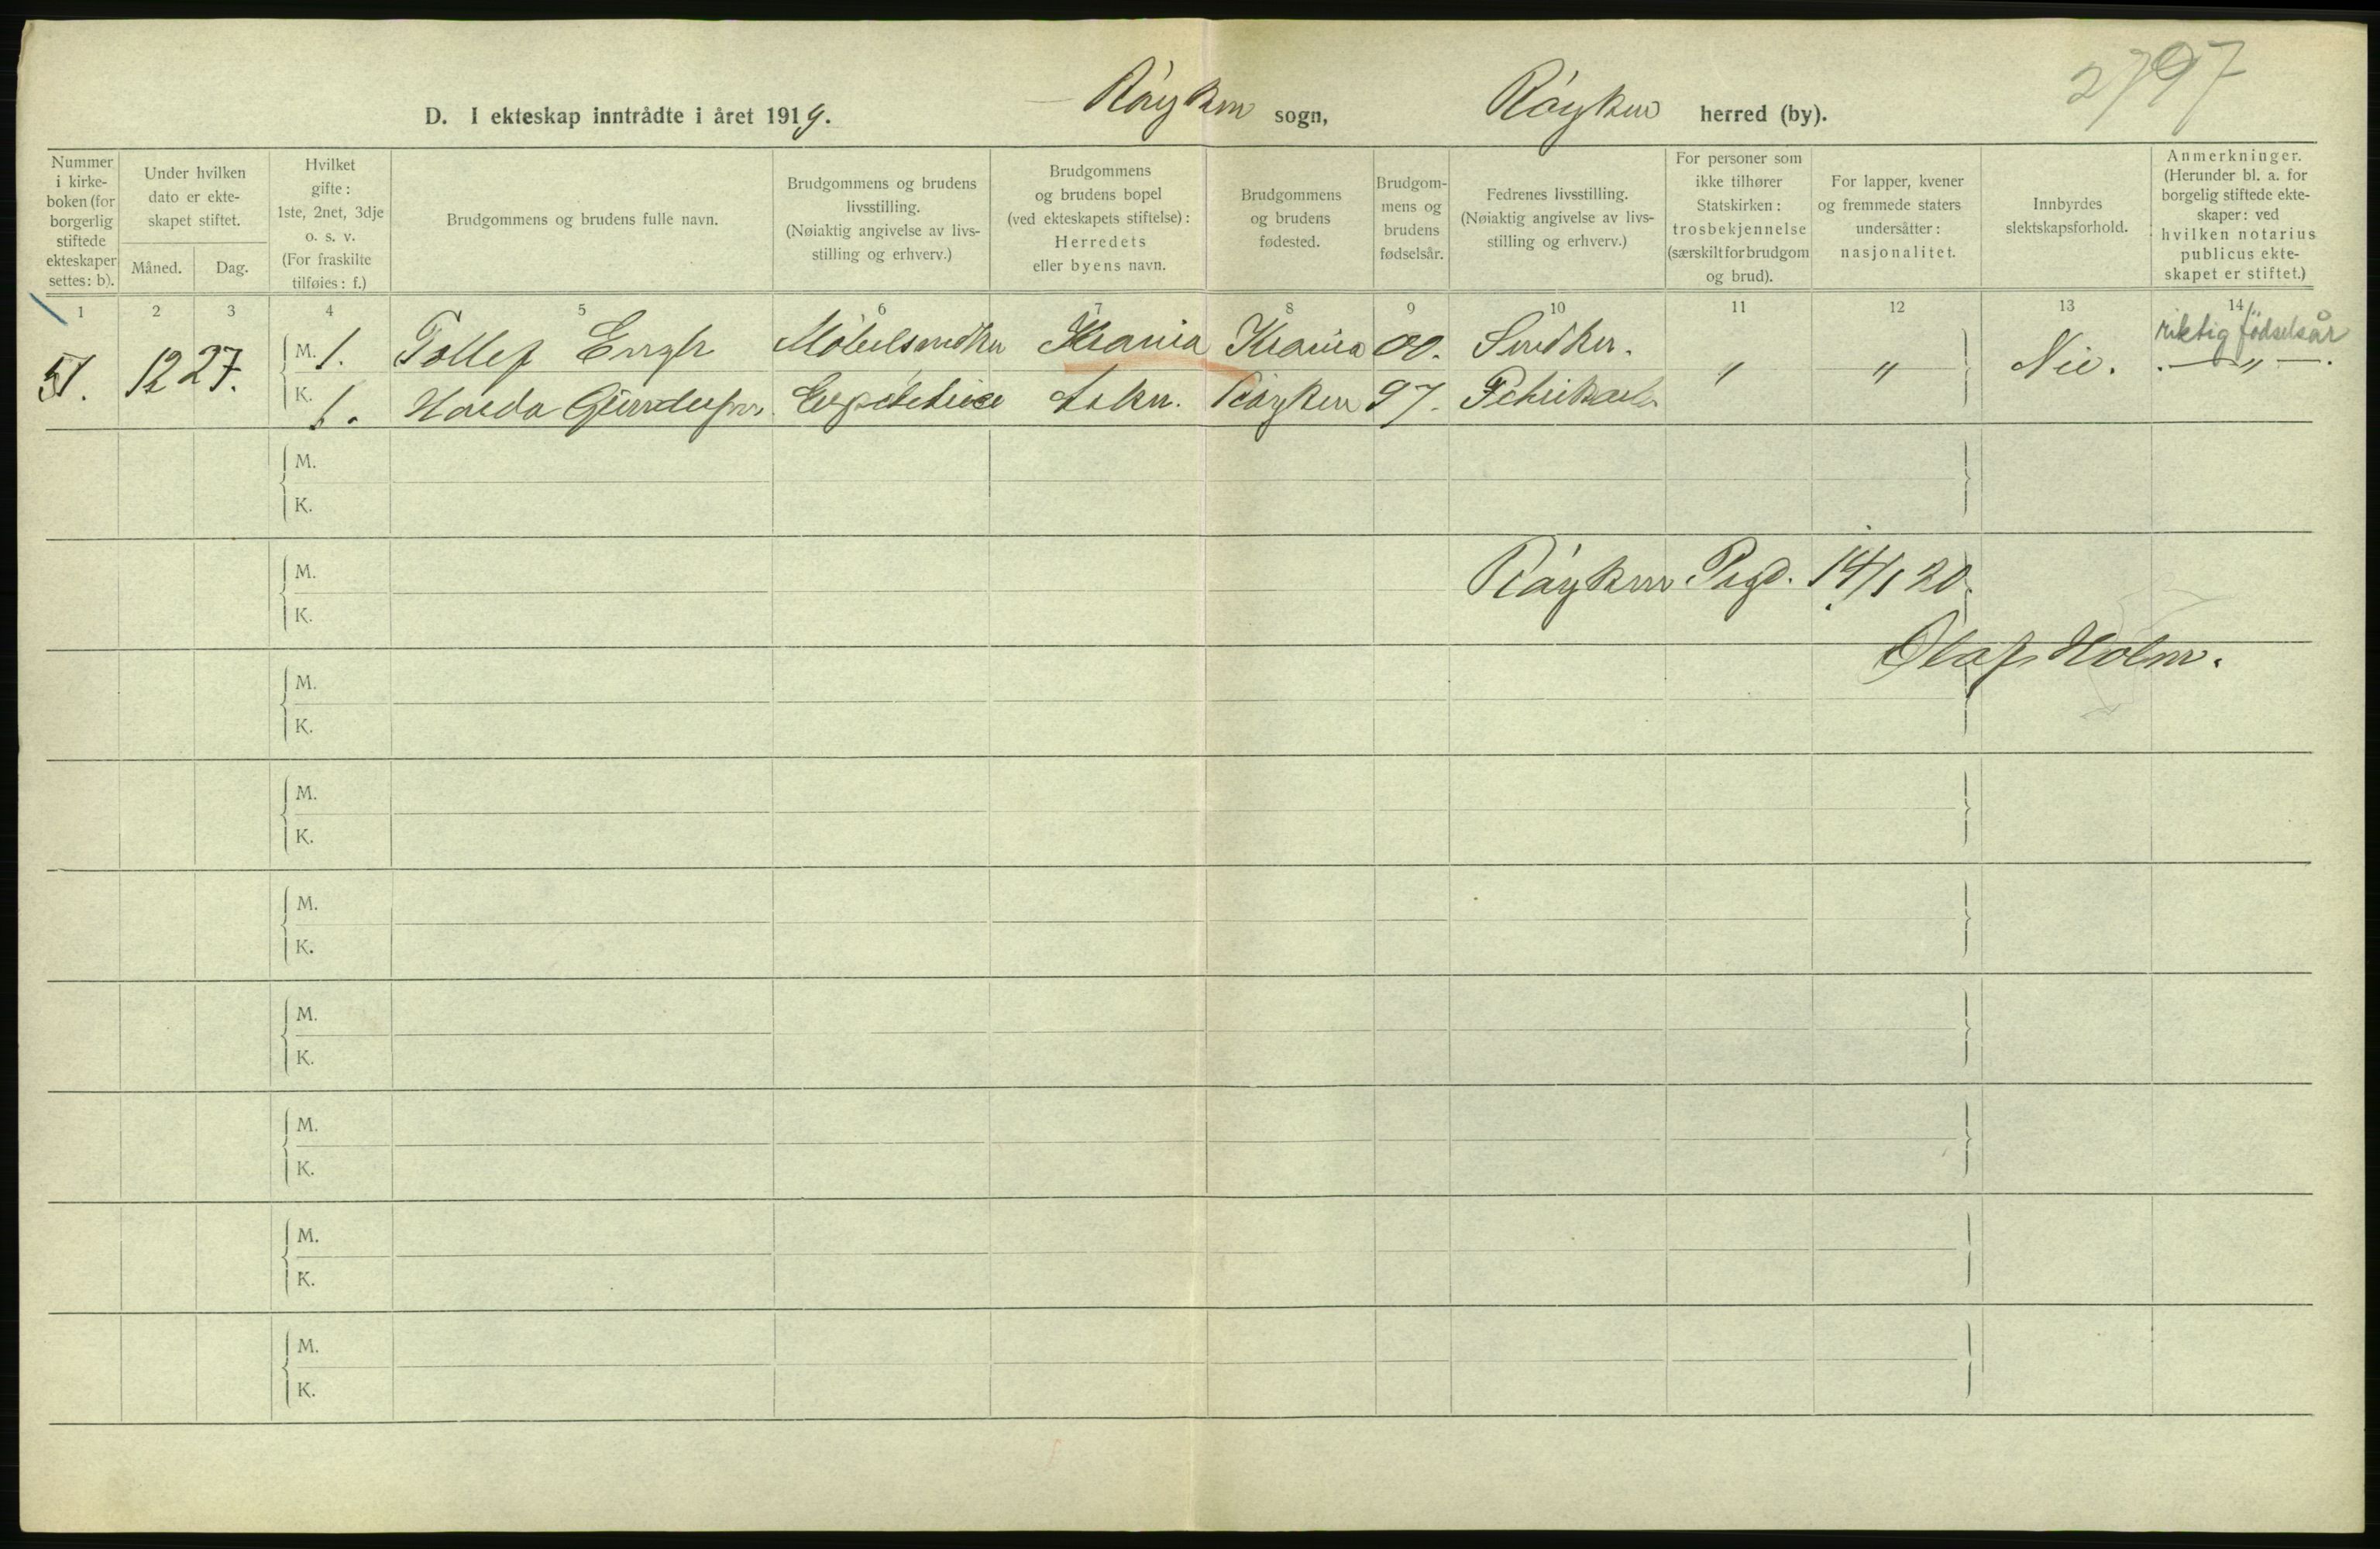 2797
D. I ekteskap inntrådte i året 1919. Røyken sogn, Røyken herred (by).
Nummer i kirke-boken (for borgerlig stiftede ekteskaper settes: b).
Under hvilken dato er ekte-skapet stiftet.
Måned. Dag.
Hvilket gifte: 1ste, 2net, 3dje o. s. v. (For fraskilte tilføies: f.)
Brudgommens og brudens fulle navn.
Brudgommens og brudens livsstilling. (Nøiaktig angivelse av livs-stilling og erhverv.)
Brudgommens og brudens bopel (ved ekteskapets stiftelse): Herredets eller byens navn.
Brudgommens og brudens fødested.
Brudgom-mens og brudens fødselsår.
Fedrenes livsstilling. (Nøiaktig angivelse av livs-stilling og erhverv.)
For personer som ikke tilhører Statskirken: trosbekjennelse (særskilt for brudgom og brud).
For lapper, kvener og fremmede staters undersåtter: nasjonalitet.
Innbyrdes slektskapsforhold.
Anmerkninger. (Herunder bl. a. for borgelig stiftede ekte-skaper: ved hvilken notarius publicus ekte-skapet er stiftet.)
1 2 3 4 5 6 7 8 9 10 11 12 13 14
riktig fødselsår
51. 12 27. M. 1. Tollef Engh Møbelsnedker Krania Krania 00. Snedker. " " Nei. — " —.
K. 1. Harda Gundersen Expeditrice Røyken 97.
M.
K.
M.
Røyken Prgd. 14/1 20.
K.
Olaf Holm.
M.
K.
M.
K.
M.
K.
M.
K.
M.
K.
M.
K.
M.
K.